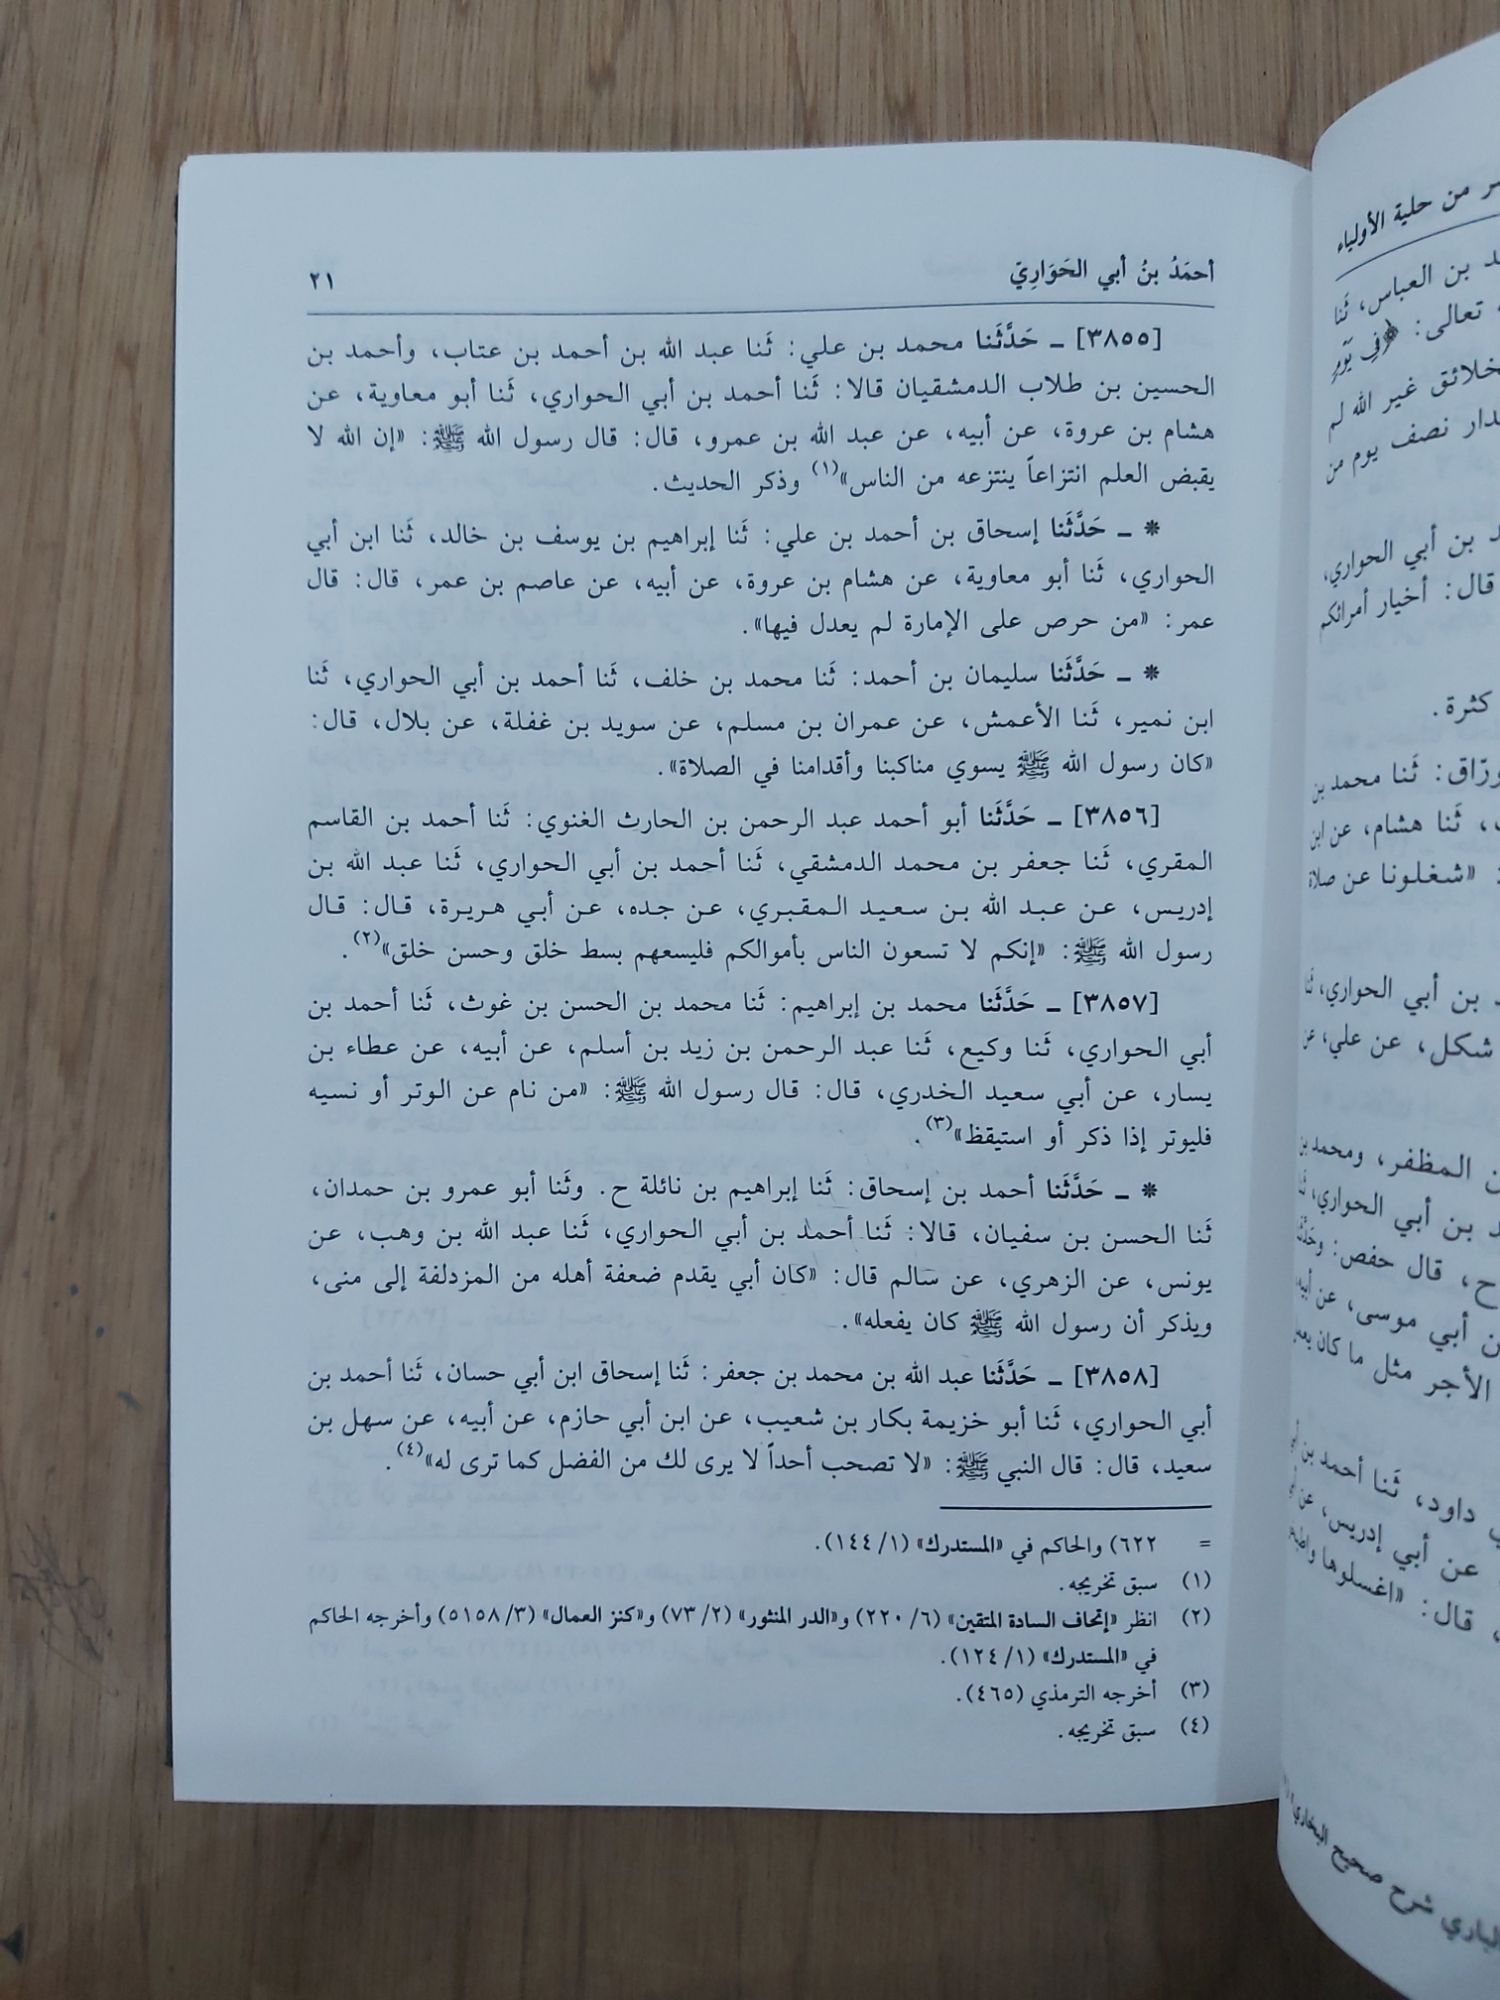 أحمَدُ بنُ أبي الحَوَارِيّ ٢١
[٣٨٥٥] ـ حَدَّثَنا محمد بن علي: ثَنا عبد الله بن أحمد بن عتاب، وأحمد بن
الحسين بن طلاب الدمشقيان قالا: ثَنا أحمد بن أبي الحواري، ثَنا أبو معاوية، عن
هشام بن عروة، عن أبيه، عن عبد الله بن عمرو، قال: قال رسول الله ﷺ: «إن الله لا
يقبض العلم انتزاعاً ينتزعه من الناس»(١) وذكر الحديث.
* ـ حَدَّثَنا إسحاق بن أحمد بن علي: ثَنا إبراهيم بن يوسف بن خالد، ثَنا ابن أبي
الحواري، ثَنا أبو معاوية، عن هشام بن عروة، عن أبيه، عن عاصم بن عمر، قال: قال
عمر: «من حرص على الإمارة لم يعدل فيها».
* ـ حَدَّثَنا سليمان بن أحمد: ثَنا محمد بن خلف، ثَنا أحمد بن أبي الحواري، ثَنا
ابن نمير، ثَنا الأعمش، عن عمران بن مسلم، عن سويد بن غفلة، عن بلال، قال:
«كان رسول الله ﷺ يسوي مناكبنا وأقدامنا في الصلاة».
[٣٨٥٦] ـ حَدَّثَنا أبو أحمد عبد الرحمن بن الحارث الغنوي: ثَنا أحمد بن القاسم
المقري، ثَنا جعفر بن محمد الدمشقي، ثَنا أحمد بن أبي الحواري، ثَنا عبد الله بن
إدريس، عن عبد الله بن سعيد المقبري، عن جده، عن أبي هريرة، قال: قال
رسول الله ﷺ: «إنكم لا تسعون الناس بأموالكم فليسعهم بسط خلق وحسن خلق»(٢).
[٣٨٥٧] ـ حَدَّثَنا محمد بن إبراهيم: ثَنا محمد بن الحسن بن غوث، ثَنا أحمد بن
أبي الحواري، ثَنا وكيع، ثَنا عبد الرحمن بن زيد بن أسلم، عن أبيه، عن عطاء بن
يسار، عن أبي سعيد الخدري، قال: قال رسول الله ﷺ: «من نام عن الوتر أو نسيه
فليوتر إذا ذكر أو استيقظ»(٣).
* ـ حَدَّثَنا أحمد بن إسحاق: ثَنا إبراهيم بن نائلة ح. وثَنا أبو عمرو بن حمدان،
ثَنا الحسن بن سفيان، قالا: ثَنا أحمد بن أبي الحواري، ثَنا عبد الله بن وهب، عن
يونس، عن الزهري، عن سالم قال: «كان أبي يقدم ضعفة أهله من المزدلفة إلى منى،
ويذكر أن رسول الله ﷺ كان يفعله».
[٣٨٥٨] ـ حَدَّثَنا عبد الله بن محمد بن جعفر: ثَنا إسحاق ابن أبي حسان، ثَنا أحمد بن
أبي الحواري، ثَنا أبو خزيمة بكار بن شعيب، عن ابن أبي حازم، عن أبيه، عن سهل بن
سعيد، قال: قال النبي ﷺ: «لا تصحب أحداً لا يرى لك من الفضل كما ترى له»(٤).
= ٦٢٢) والحاكم في «المستدرك» (١/ ١٤٤).
(١) سبق تخريجه.
(٢) انظر «إتحاف السادة المتقين» (٦/ ٢٢٠) و«الدر المنثور» (٢/ ٧٣) و«كنز العمال» (٣/ ٥١٥٨) وأخرجه الحاكم
في «المستدرك» (١/ ١٢٤).
(٣) أخرجه الترمذي (٤٦٥).
(٤) سبق تخريجه.
من حلية الأولياء
بن العباس، ثَنا
تعالى: ﴿فِي يَوْمٍ
غير الله لم
نصف يوم من
بن أبي الحواري،
قال: أخيار أمرائكم
كثرة.
ثَنا محمد بن
ثَنا هشام، عن ابن
«شغلونا عن صلاة
بن أبي الحواري، ثَنا
شكل، عن علي، عن
المظفر، ومحمد بن
بن أبي الحواري،
ح، قال حفص:
أبي موسى، عن أبيه
الأجر مثل ما كان
داود، ثَنا أحمد بن
عن أبي إدريس، عن
قال: «اغسلوها
شرح صحيح البخاري»